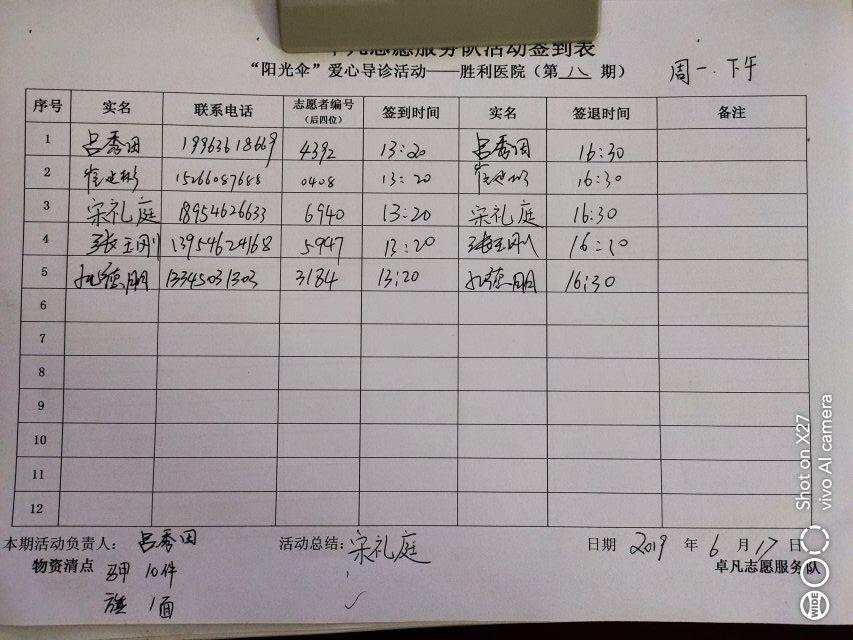 志愿服务队活动签到表
“阳光伞”爱心导诊活动——胜利医院（第 八 期） 周一.下午
序号 实名 联系电话 志愿者编号（后四位） 签到时间 实名 签退时间 备注
1 吕秀田 19963618669 4392 13:20 吕秀田 16:30
2 15266087688 0408 13:20 16:30
3 宋礼庭 18954626633 6940 13:20 宋礼庭 16:30
4 张玉刚 13954624168 5947 13:20 张玉刚 16:30
5 13345031303 3184 13:20 16:30
6
7
8
9
10
11
12
本期活动负责人： 吕秀田 活动总结： 宋礼庭 日期 2019 年 6 月 17 日
物资清点 马甲 10件 卓凡志愿服务队
旗 1面 ✓
Shot on X27
vivo AI camera
WIDE